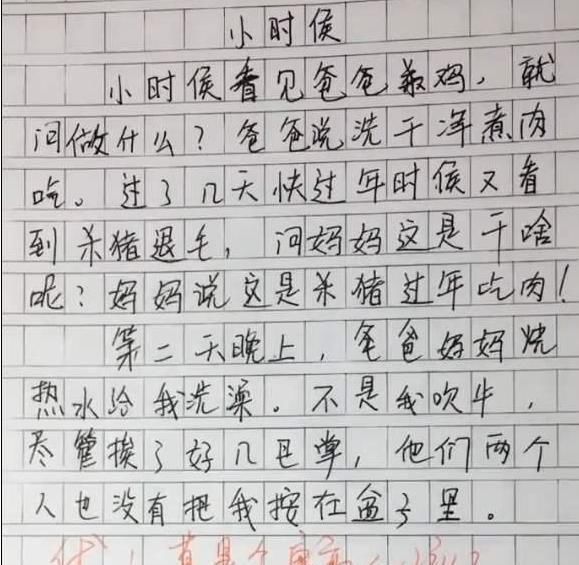 小时侯
小时侯看见爸爸杀鸡，就
问做什么？爸爸说洗干净煮肉
吃。过了几天快过年时侯又看
到杀猪退毛，问妈妈这是干啥
呢？妈妈说这是杀猪过年吃肉！
第二天晚上，爸爸妈妈烧
热水给我洗澡。不是我吹牛，
尽管挨了好几巴掌，他们两个
人也没有把我按在盆子里。